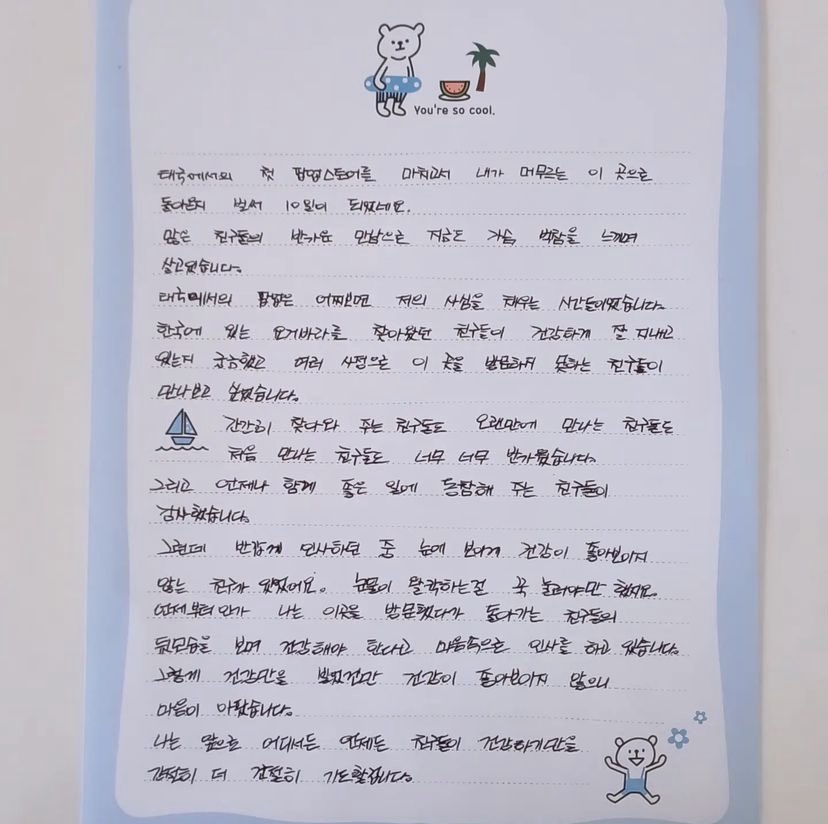 You're so cool.
태국에서의 첫 팝업스토어를 마치고서 내가 머무르는 이 곳으로
돌아온지 벌써 10일이 되었네요.
많은 친구들의 반가운 만남으로 지금도 가슴 벅참을 느끼며
살고있습니다.
태국에서의 팝업은 어찌보면 저의 사심을 채우는 시간들이었습니다.
한국에 있는 요거바라를 찾아왔던 친구들이 건강하게 잘 지내고
있는지 궁금했고 여러 사정으로 이 곳을 방문하지 못하는 친구들이
만나보고 싶었습니다.
간간히 찾아와 주는 친구들도 오랜만에 만나는 친구들도
처음 만나는 친구들도 너무 너무 반가웠습니다.
그리고 언제나 함께 좋은 일에 동참해 주는 친구들이
감사했습니다.
그런데 반갑게 인사하던 중 눈에 보이게 건강이 좋아보이지
않는 친구가 있었어요. 눈물이 왈칵하는걸 꾹 눌러야만 했지요.
언제부터인가 나는 이곳을 방문했다가 돌아가는 친구들의
뒷모습을 보며 건강해야 한다고 마음속으로 인사를 하고 있습니다.
그렇게 건강만을 빌었건만 건강이 좋아보이지 않으니
마음이 아팠습니다.
나는 앞으로 어디서든 언제든 친구들이 건강하기만을
간절히 더 간절히 기도할겁니다.